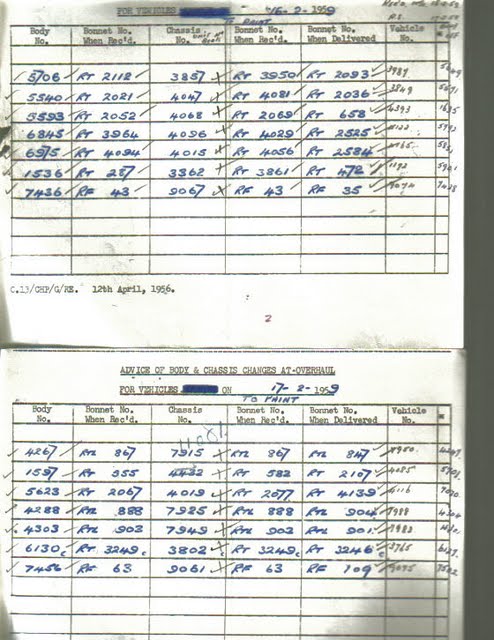 FOR VEHICLES 16-2-1959
TO PAINT
Body No. Bonnet No. When Rec'd. Chassis No. Bonnet No. When Rec'd. Bonnet No. When Delivered Vehicle No.
5706 RT 2112 3857 RT 3950 RT 2093 3989
5540 RT 2021 4047 RT 4081 RT 2036 3849
5593 RT 2052 4068 RT 2069 RT 658 4393
6845 RT 3964 4096 RT 4029 RT 2525
6975 RT 4094 4015 RT 4056 RT 2584
1536 RT 287 3362 RT 3861 RT 472
7436 RF 43 9067 RF 43 RF 35
C.13/CHP/G/RE. 12th April, 1956.
2
ADVICE OF BODY & CHASSIS CHANGES AT OVERHAUL
FOR VEHICLES ON 17-2-1959
TO PAINT
Body No. Bonnet No. When Rec'd. Chassis No. Bonnet No. When Rec'd. Bonnet No. When Delivered Vehicle No.
4267 RM 867 7915 RM 867 RM 847
1597 RT 355 4432 RT 582 RT 2107 4085
5623 RT 2067 4019 RT 2077 RT 4139
4288 RM 888 7925 RM 888 RM 904 7988
4303 RM 903 7949 RM 903 RM 901 7983
6130 RT 3249 3802 RT 3249 RT 3246 3765
7456 RF 63 9061 RF 63 RF 109 9095